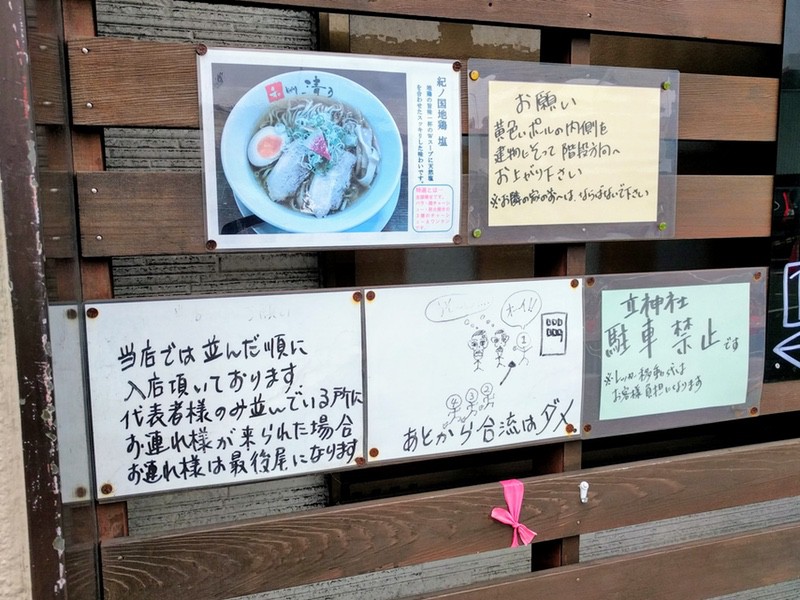 紀ノ国地鶏 塩
お願い
黄色いポールの内側を
建物にそって階段方向へ
お上がり下さい
※お隣の家の前へは、ならばないで下さい
当店では並んだ順に
入店頂いております.
代表者様のみ並んでいる所に
お連れ様が来られた場合
お連れ様は最後尾になります
オーイ!!
1
4 3 2
あとから合流はダメ
立神社
駐車禁止です
※レッカー移動代は
お客様負担になります